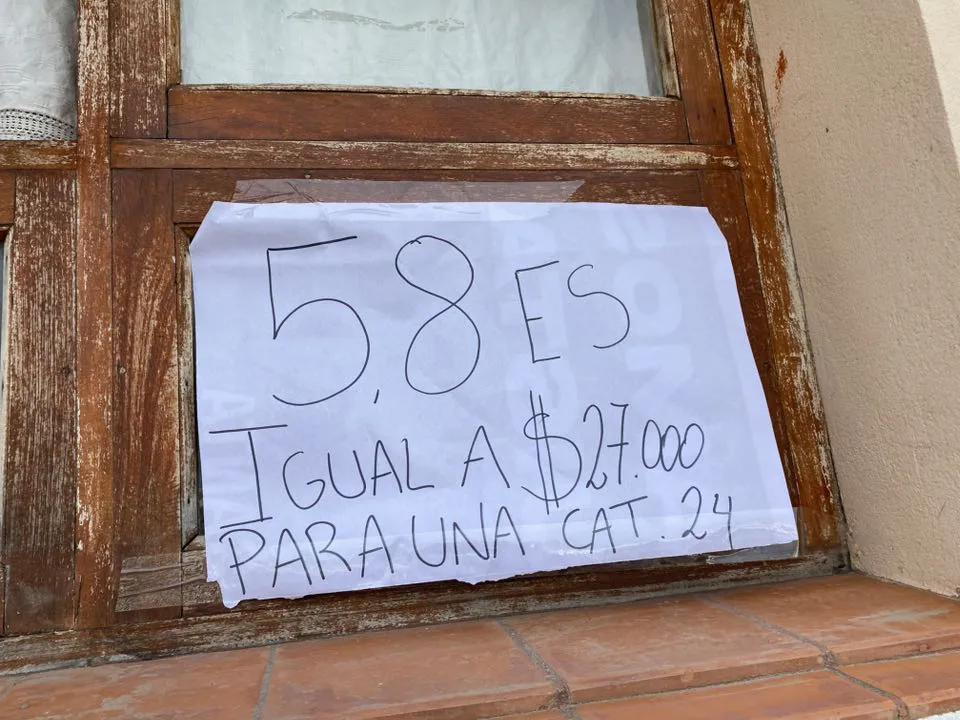 5,8 ES
IGUAL A $27.000
PARA UNA CAT. 24